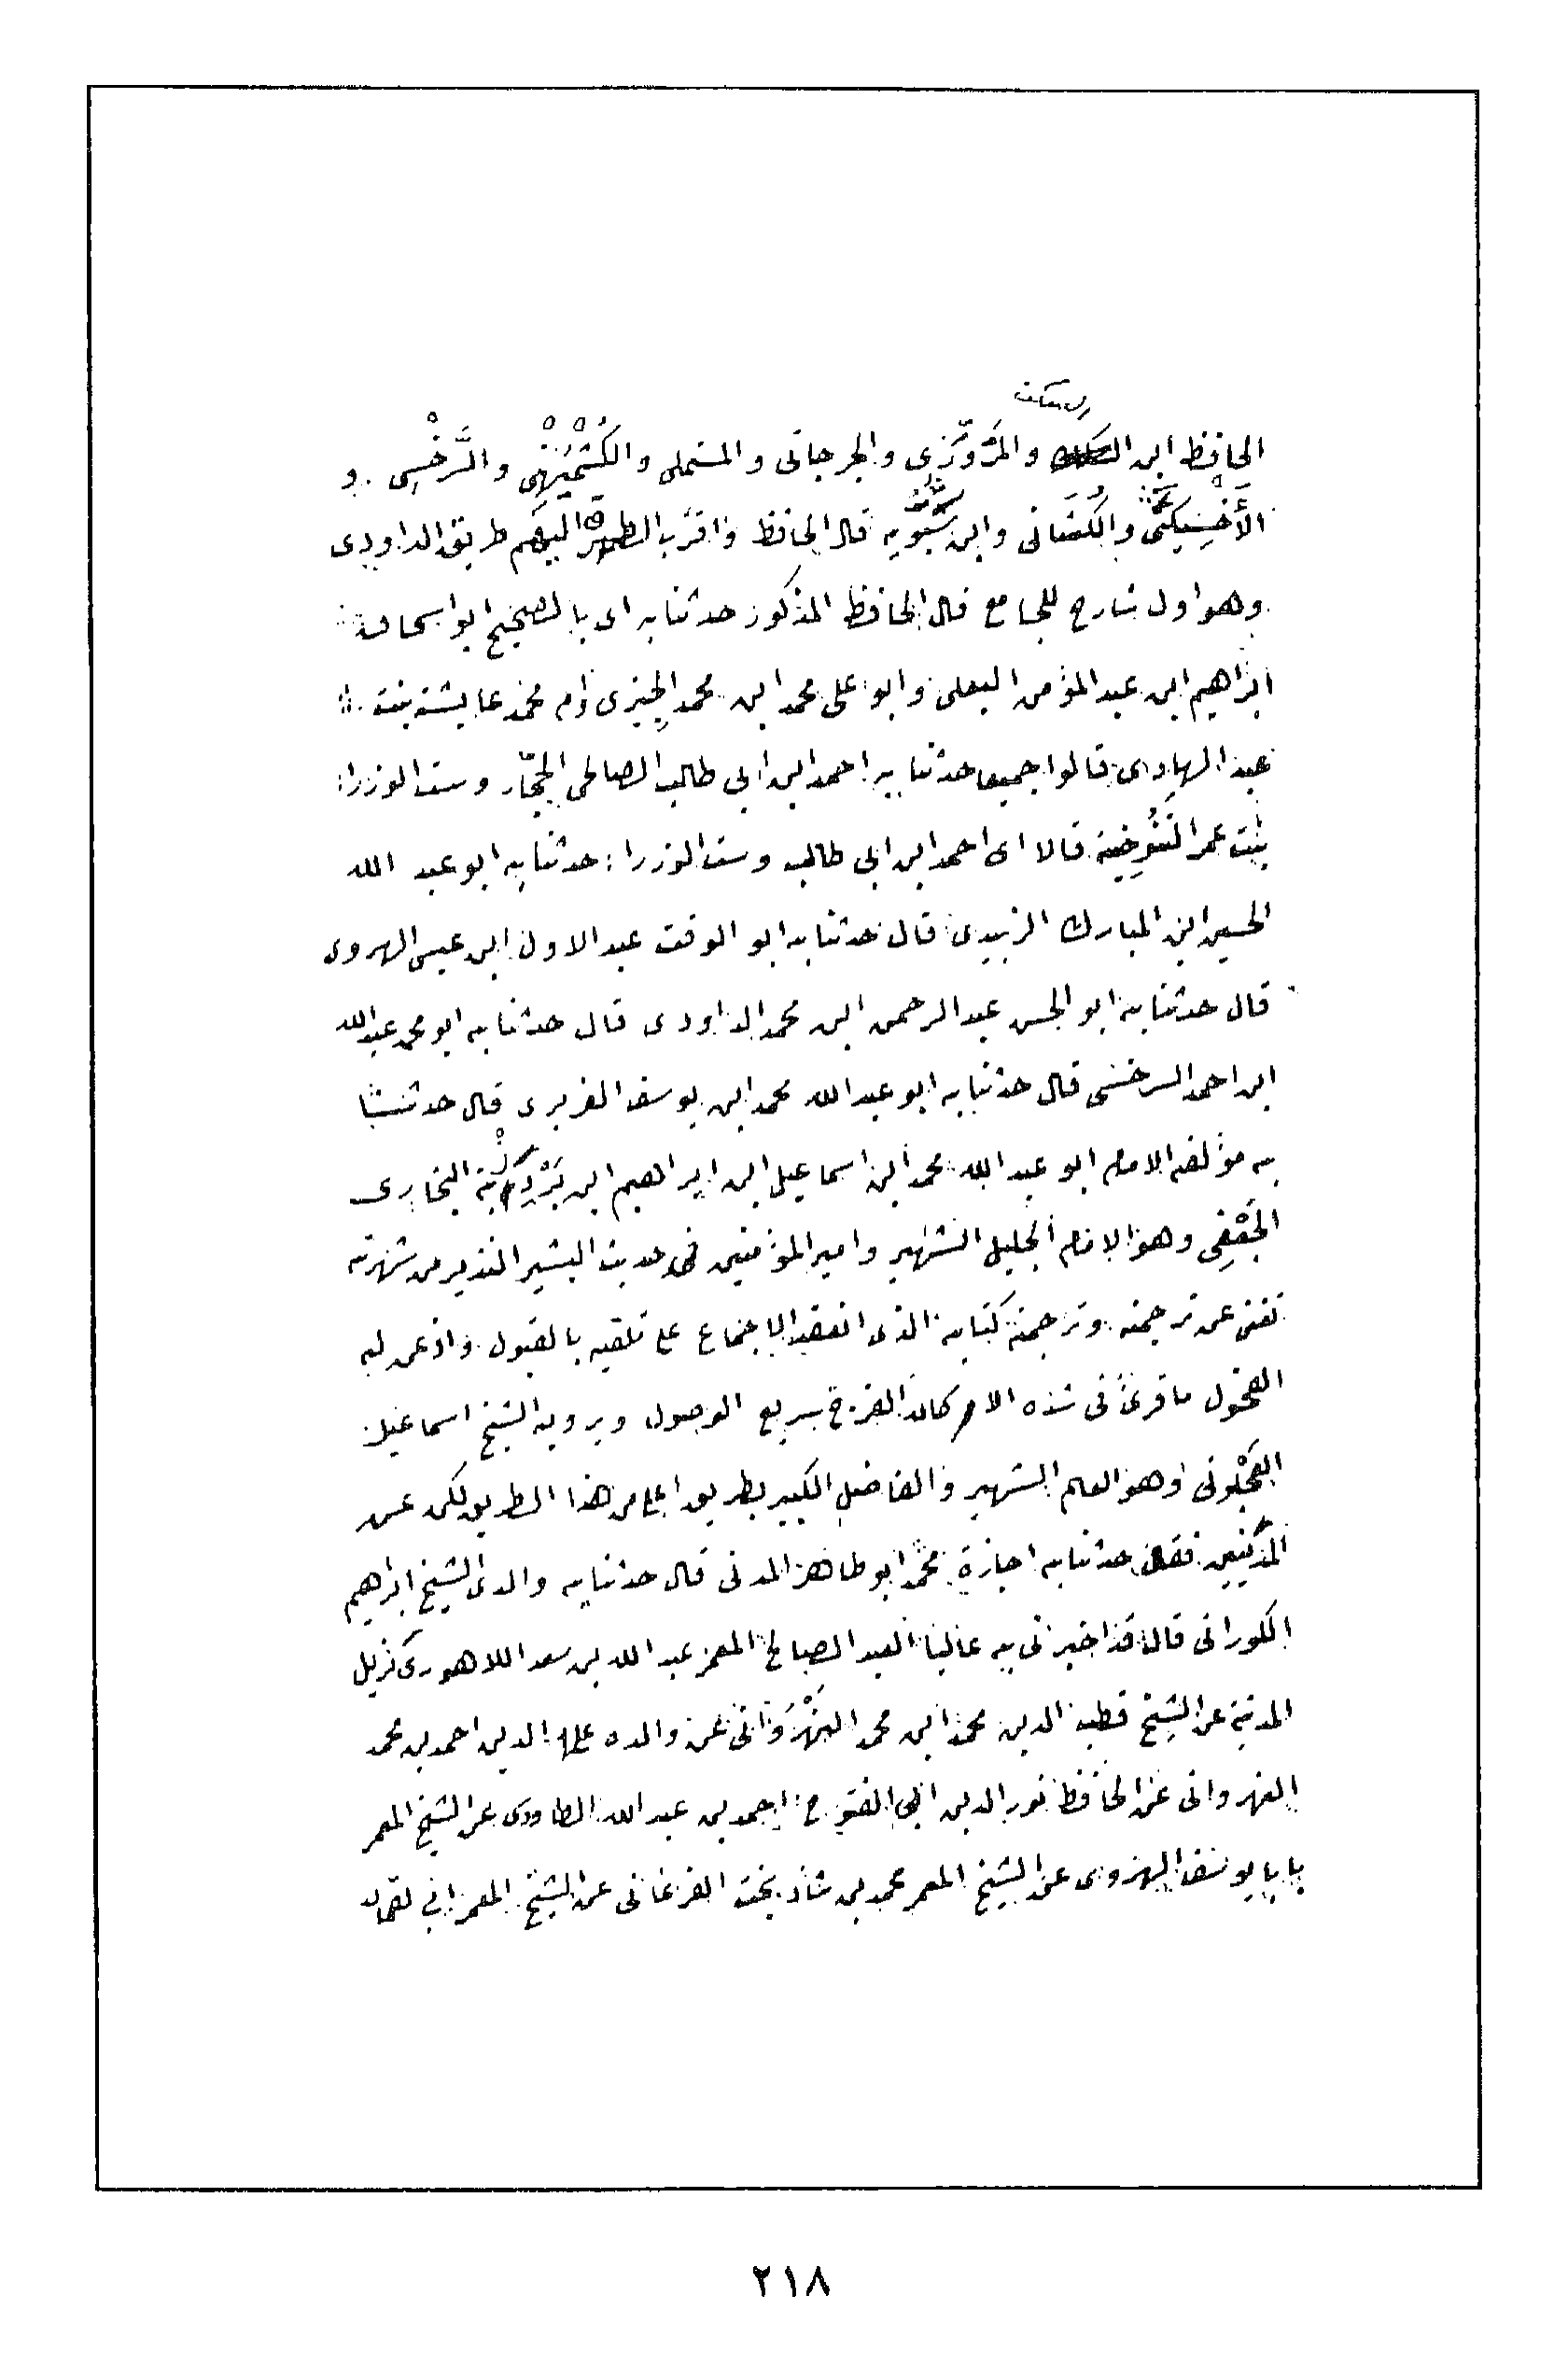 السكن
الحافظ ابن والمَرْوَزى والجرجانى والمستملى والكُشْمَيْهَنِى والسَّرَخْسِى و
الأَخْسِيكَثى والكُشَانى وابن شَبُّويه قال الحافظ واقرب الطرق اليهم طريق الداودى
وهو اول شارح للجامع قال الحافظ المذكور حدثنا به اى بالصحيح ابو اسحاق
ابراهيم ابن عبد المؤمن البعلى وابو على محمد ابن محمد الجيزى وام محمد عايشة بنت
عبد الهادى قالوا جميعا حدثنا به احمد ابن ابى طالب الصالحى الحجّار وست الوزرا
بنت عمر التَنُوخِية قالا اى احمد ابن ابى طالب وست الوزرا حدثنا به ابو عبد الله
الحسين ابن المبارك الزبيدى قال حدثنا به ابو الوقت عبد الاول ابن عيسى الهروى
قال حدثنا به ابو الحسن عبد الرحمن ابن محمد الداودى قال حدثنا به ابو محمد عبد الله
ابن احمد السرخسى قال حدثنا به ابو عبد الله محمد ابن يوسف الفربرى قال حدثنا
به مؤلفه الامام ابو عبد الله محمد ابن اسماعيل ابن ابراهيم ابن بَرْدِزْبَة البخارى
الجُعْفِى وهو الامام الجليل الشهير وامير المؤمنين فى حديث البشير النذير من شهرته
تغنى عن ترجمته وترجمة كتابه الذى انعقد الاجماع على تلقيه بالقبول واذعن له
الفحول ما قرئ فى شده الا وكان الفرج سريع الوصول ويرويه الشيخ اسماعيل
العَجْلونى وهو العلم الشهير والفاضل الكبير بطريق اعلى من هذا الطريق لكن عن
المدنيين فقال حدثنا به اجازة محمد ابو طاهر المدنى قال حدثنا به والدى الشيخ ابراهيم
الكورانى قال قد اخبرنى به عاليا العبد الصالح المعمر عبد الله بن سعد اللاهورى نزيل
المدينة عن الشيخ قطب الدين محمد ابن محمد النَهْرَوَانى عن والده علا الدين احمد بن محمد
النهروانى عن الحافظ نور الدين ابى الفتوح احمد بن عبد الله الطاووى عن الشيخ المعمر
بابا يوسف الهروى عن الشيخ المعمر محمد بن شاذ بخت الفرغانى عن الشيخ المعمر ابى لقمان
٢١٨